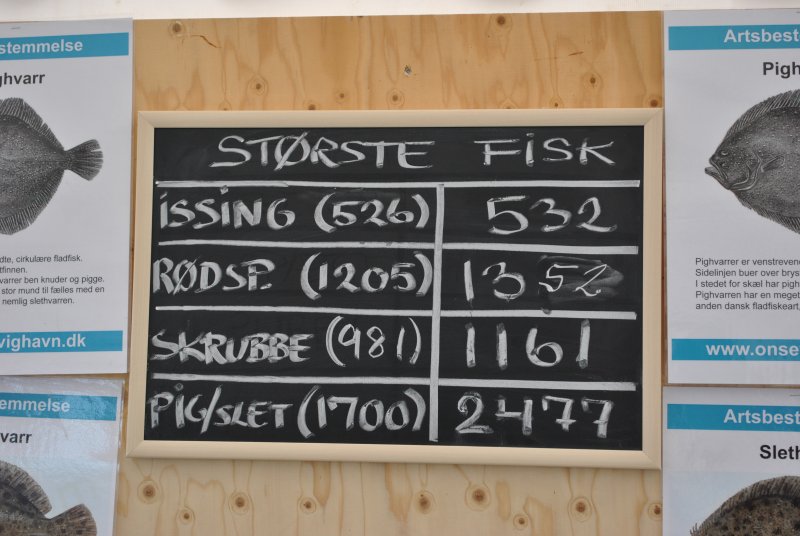 stemmelse
ghvarr
dte, cirkulære fladfisk.
tfinnen.
varrer ben knuder og pigge.
stor mund til fælles med en
nemlig slethvarren.
vighavn.dk
stemmelse
varr
STØRSTE FISK
ISSING (526) 532
RØDSP. (1205) 1352
SKRUBBE (981) 1161
PIG/SLET (1700) 2477
Artsbest
Pigh
Pighvarrer er venstrevend
Sidelinjen buer over brys
I stedet for skæl har pigh
Pighvarren har en meget
anden dansk fladfiskeart,
www.onsev
Artsbest
Sleth